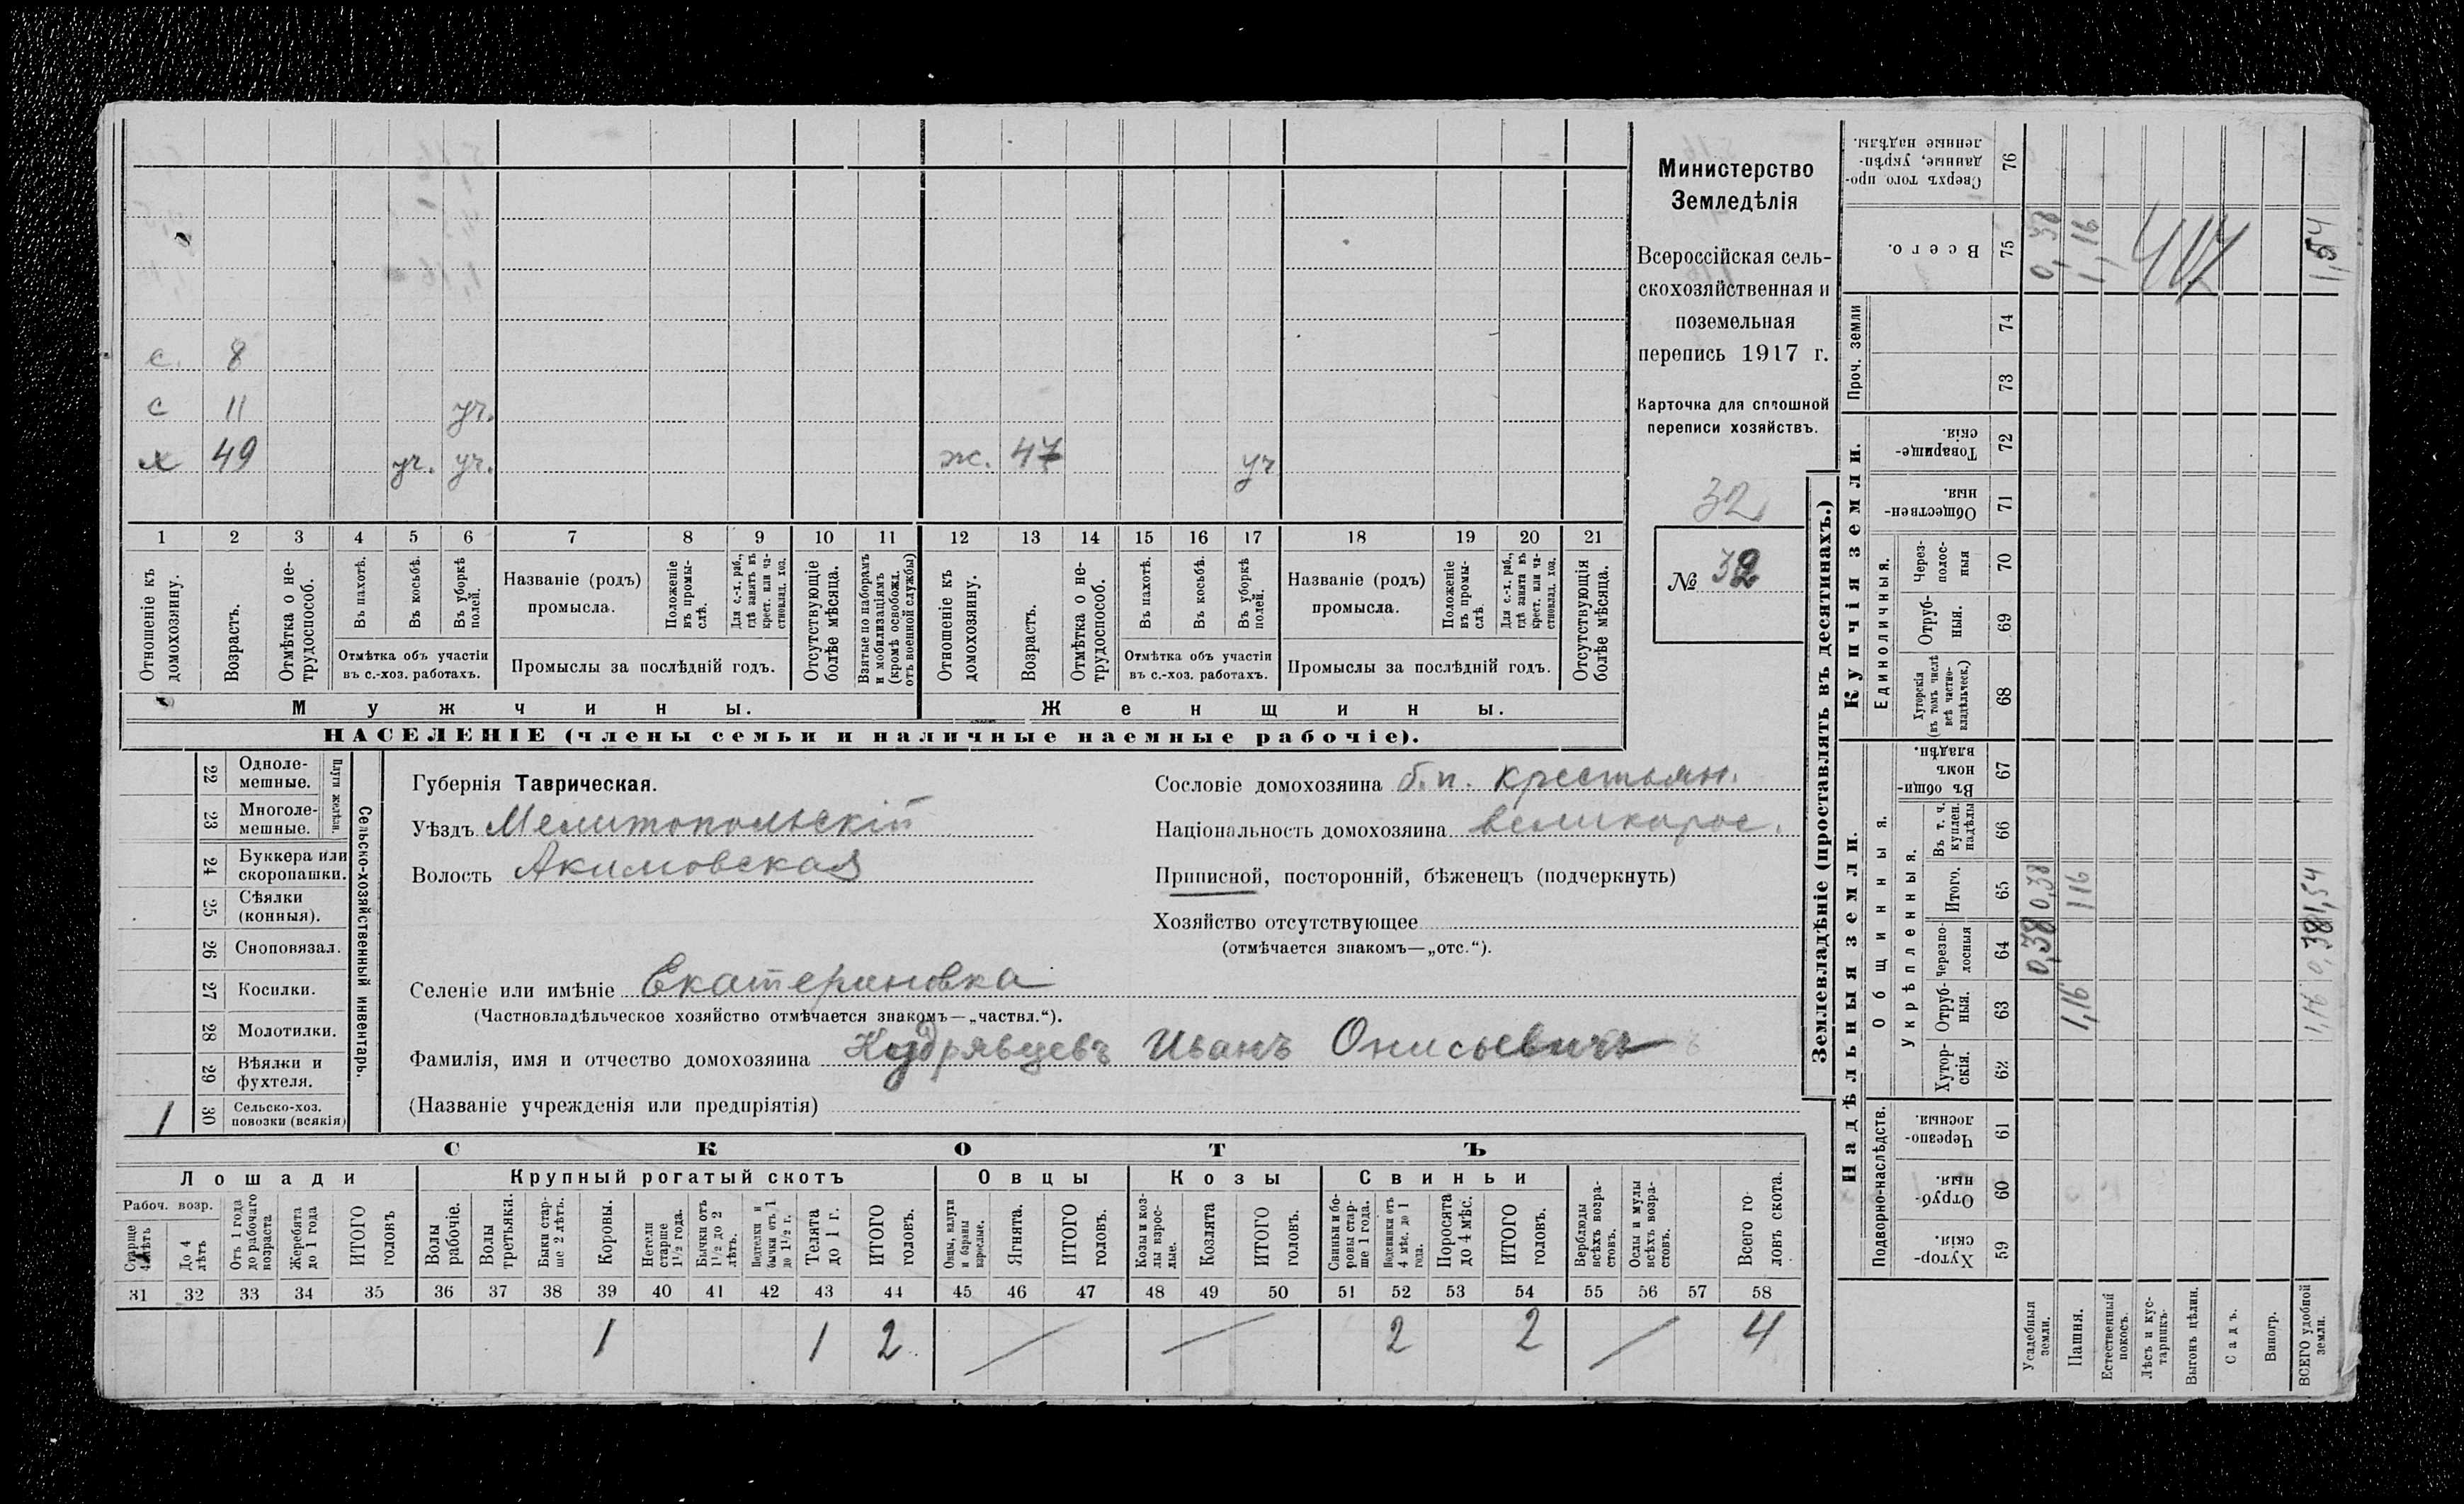 с. 8
с 11 уч.
х 49 уч. уч. ж. 47 уч
1 2 3 4 5 6 7 8 9 10 11 12 13 14 15 16 17 18 19 20 21
Отношеніе къ домохозяину.
Возрастъ.
Отмѣтка о не-трудоспособ.
Въ пахотѣ.
Въ косьбѣ.
Въ уборкѣ полей.
Отмѣтка объ участіи
въ с.-хоз. работахъ.
Названіе (родъ)
промысла.
Положеніе въ промы-слѣ.
Для с.-х. раб., гдѣ занятъ въ крест. или ча-стновлад. хоз.
Промыслы за послѣдній годъ.
Отсутствующіе болѣе мѣсяца.
Взятые по наборамъ и мобилизаціямъ (кромѣ освобожд. отъ военной службы)
Отношеніе къ домохозяину.
Возрастъ.
Отмѣтка о не-трудоспособ.
Въ пахотѣ.
Въ косьбѣ.
Въ уборкѣ полей.
Отмѣтка объ участіи
въ с.-хоз. работахъ.
Названіе (родъ)
промысла.
Положеніе въ промы-слѣ.
Для с.-х. раб., гдѣ занята въ крест. или ча-стновлад. хоз.
Промыслы за послѣдній годъ.
Отсутствующія болѣе мѣсяца.
Мужчины.
Женщины.
НАСЕЛЕНІЕ (члены семьи и наличные наемные рабочіе).
Министерство
Земледѣлія
Всероссійская сель-
скохозяйственная и
поземельная
перепись 1917 г.
Карточка для сплошной
переписи хозяйствъ.
32
№ 32
22 Одноле-мешные.
23 Многоле-мешные.
Плуги желѣзн.
24 Буккера или скоропашки.
25 Сѣялки (конныя).
26 Сноповязал.
27 Косилки.
28 Молотилки.
29 Вѣялки и фухтеля.
1 30 Сельско-хоз. повозки (всякія)
Сельско-хозяйственный инвентарь.
Губернія Таврическая.
Уѣздъ Мелитопольскій
Волость Акимовская
Сословіе домохозяина б.п. крестьян.
Національность домохозяина великорос.
Приписной, посторонній, бѣженецъ (подчеркнуть)
Хозяйство отсутствующее
(отмѣчается знакомъ—„отс.“).
Селеніе или имѣніе Екатериновка
(Частновладѣльческое хозяйство отмѣчается знакомъ—„частвл.“).
Фамилія, имя и отчество домохозяина Кудрявцевъ Иванъ Онисьевичъ
(Названіе учрежденія или предпріятія)
СКОТЪ
Лошади Крупный рогатый скотъ Овцы Козы Свиньи
Рабоч. возр.
Старше 4 лѣтъ
До 4 лѣтъ
Отъ 1 года до рабочаго возраста
Жеребята до 1 года
ИТОГО головъ
Волы рабочіе.
Волы третьяки.
Быки стар-ше 2 лѣтъ.
Коровы.
Нетели старше 1½ года.
Бычки отъ 1½ до 2 лѣтъ.
Подтелки и бычки отъ 1 до 1½ г.
Телята до 1 г.
ИТОГО головъ.
Овцы, валухи и бараны взрослые.
Ягнята.
ИТОГО головъ.
Козы и коз-лы взрос-лые.
Козлята
ИТОГО головъ.
Свиньи и бо-ровы стар-ше 1 года.
Подсвинки отъ 4 мѣс. до 1 года.
Поросята до 4 мѣс.
ИТОГО головъ.
Верблюды всѣхъ возра-стовъ.
Ослы и мулы всѣхъ возра-стовъ.
Всего го-ловъ скота.
31 32 33 34 35 36 37 38 39 40 41 42 43 44 45 46 47 48 49 50 51 52 53 54 55 56 57 58
1 1 2 2 2 4
Землевладѣніе (проставлять въ десятинахъ.)
Сверхъ того про-данные, укрѣп-ленные надѣлы. 76
Всего. 75 0,38 1,16 1,54
Проч. земли 74 73
Купчія земли.
Товарище-скія. 72
Обществен-ныя. 71
Единоличныя.
Через-полос-ныя 70
Отруб-ныя. 69
Хуторскія (въ томъ числѣ всѣ частно-владѣльческ.) 68
Надѣльныя земли.
Общинныя.
Въ общи-номъ владѣн. 67
Укрѣпленныя.
Въ т. ч. куплен. надѣлы 66
Итого. 65 0,38 116 1,54
черезпо-лосныя 64 0,38 0,38
Отруб-ныя. 63 1,16 1,16
Хутор-скія. 62
Подворно-наслѣдств.
Черезпо-лосныя 61
Отруб-ныя. 60
Хутор-скія. 59
Усадебныя земли.
Пашня.
Естественный покосъ.
Лѣсъ и кус-тарникъ.
Выгонъ цѣлин.
Садъ.
Виногр.
ВСЕГО удобной земли.